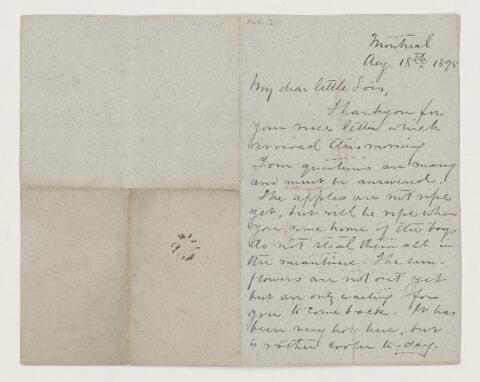 Montreal
Aug 18th 1898
My dear little Lois,
Thank you for
your nice letter which
arrived this morning
Your questions are many
and must be answered.
The apples are not ripe
yet, but will be ripe when
you come home if the boys
do not steal them all in
the meantime. The sun-
flowers are not out yet
but are only waiting for
you to come back. It has
been very hot here, but
is rather cooler to-day.